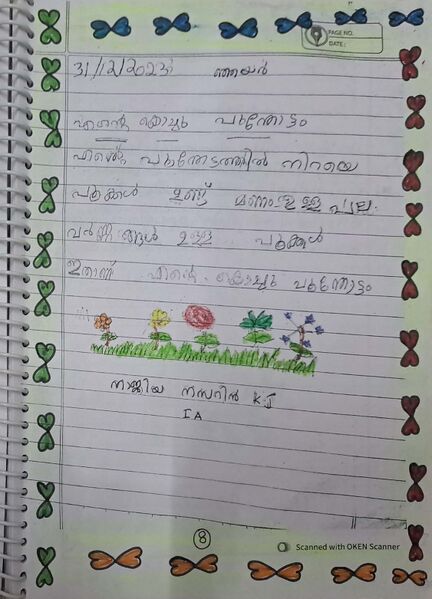 PAGE NO.
DATE:
31/12/2023 ഞായർ
എന്റെ കൊച്ചു പൂന്തോട്ടം
എന്റെ പൂന്തോട്ടത്തിൽ നിറയെ
പൂക്കൾ ഉണ്ട് മണം ഉള്ള പല
വർണ്ണങ്ങൾ ഉള്ള പൂക്കൾ
ഇതാണ് എന്റെ കൊച്ചു പൂന്തോട്ടം
നാജിയ നസറിൻ K.J
I A
8
Scanned with OKEN Scanner